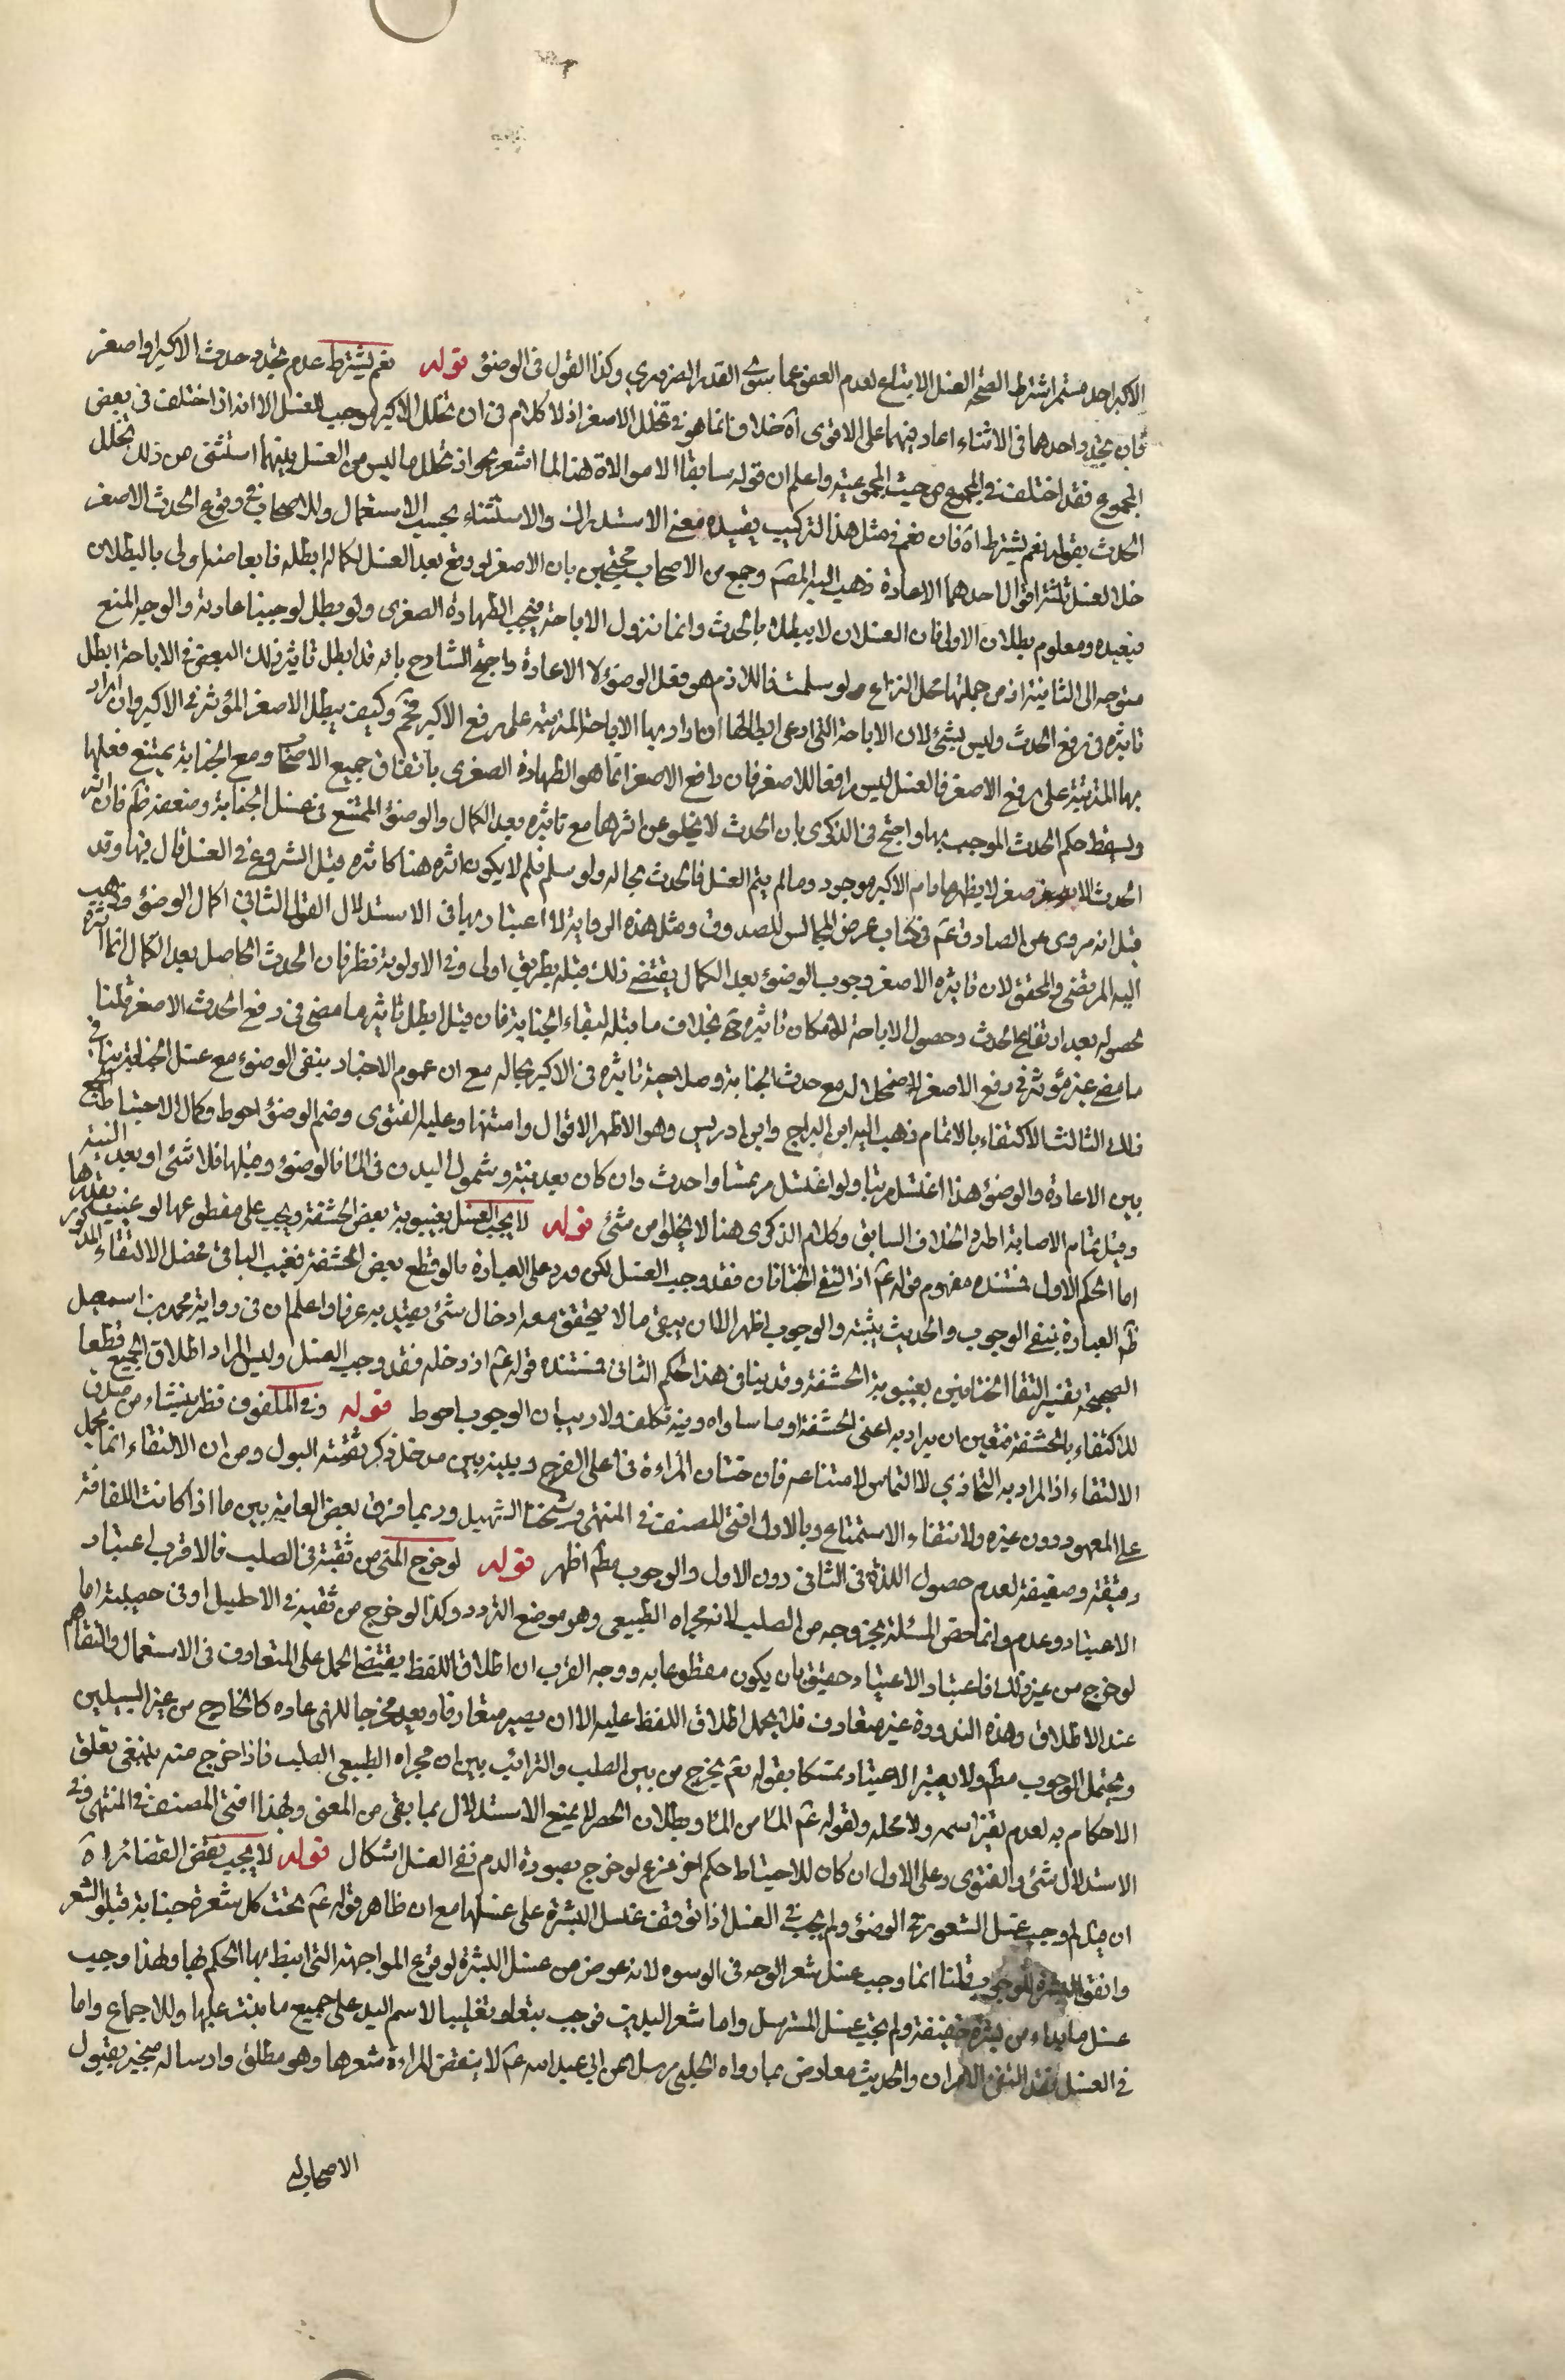 الاكبر احد مستمر اشترط لصحة الغسل الاتباع لعدم العفو عما سوى القدر الضروري وكذا القول في الوضوء قوله نعم يشترط عدم تجدد حدث اكبر او اصغر
فان تجدد احدهما في الاثناء اعاد فيهما على الاقوى آه خلافا انما هو في تخلل الاصغر اذ لا كلام في ان تخلل الاكبر موجب للغسل الا انه اذا اختلف في بعض
المجموع فقد اختلف في المجموع من حيث المجموعية واعلم ان قوله سابقا لا موالاة هنا لما اشعر بجواز تخلل ما ليس من الغسل بينهما استثنى من ذلك تخلل
الحدث بقوله نعم يشترط آه فان نعم في مثل هذا التركيب يفيده معنى الاستدراك والاستثناء بحسب الاستعمال وللاصحاب في وقوع الحدث الاصغر
خلال الغسل ثلثة اقوال احدهما الاعادة ذهب اليه المصنف وجمع من الاصحاب محتجين بان الاصغر لو وقع بعد الغسل لكماله ابطله فابعاضه اولى بالبطلان
فيعيده ومعلوم بطلان الاولى فان الغسل لا يبطل بالحدث وانما تزول الاباحة فتجب الطهارة الصغرى ولو بطل لوجبنا اعادته والوجه المنع
متوجه الى الثانية اذ من جملتها محل النزاع ولو سلمت فاللازم هو فعل الوضوء لا الاعادة واحتج الشارح بانه قد ابطل تاثير ذلك البعض في الاباحة ابطل
تاثيره في رفع الحدث وليس بشئ لان الاباحة التي ادعى ابطالها ان اراد بها الاباحة المترتبة على رفع الاكبر وكيف يبطل الاصغر المؤثر في الاكبر وان اراد
بها المترتبة على رفع الاصغر فالغسل ليس رافعا للاصغر فان رافع الاصغر انما هو الطهارة الصغرى باتفاق جميع الاصحاب ومع الجنابة يمتنع فعلها
ويسقط حكم الحدث الموجب بها واحتج في الذكرى بان الحدث لا يخلو عن اثرها مع تاثيره بعد الكمال والوضوء الممتنع في غسل الجنابة وضعفه ظم فان اثر
الحدث الاصغر لا يظهر ما دام الاكبر موجود وما لم يتم الغسل فالحدث بحاله ولو سلم فلم لا يكون اثره هنا كاثره قبل الشروع في الغسل قال فيها وقد
قيل انه مروى عن الصادق عم في كتاب عرض المجالس للصدوق ومثل هذه الرواية لا اعتبار بها في الاستدلال القول الثاني اكمال الوضوء ذهب
اليه المرتضى والمحقق لان تاثيره الاصغر وجوب الوضوء بعد الكمال يقتضى ذلك قبله بطريق اولى وفي الاولوية نظر فان الحدث الحاصل بعد الكمال انما اثره
لحصوله بعد ارتفاع الحدث وحصول الاباحة لامكان تاثيره ح بخلاف ما قبله لبقاء الجنابة فان قيل ابطل تاثير ما مضى في رفع الحدث الاصغر قلنا
ما مضى غير مؤثر في رفع الاصغر لاضمحلاله مع حدث الجنابة وصلاحية تاثيره في الاكبر بحاله مع ان عموم الاخبار ينفى الوضوء مع غسل الجنابة ينافي
ذلك الثالث الاكتفاء بالاتمام ذهب اليه ابن البراج وابن ادريس وهو الاظهر الاقوال وامتنها وعليه الفتوى وضم الوضوء احوط وكمال الاحتياط الجمع
بين الاعادة والوضوء هذا اذا اغتسل مرتبا ولو اغتسل مرتمسا واحدث وان كان بعد نية وشمول البدن في الماء فالوضوء وقبلها فلا شئ او بعد النية
وقبل تمام الاصابة اطرد الخلاف السابق وكلام الذكرى هنا لا يخلو من شئ قوله لا يجب الغسل بغيبوبة بعض الحشفة ويجب على مقطوعها لو غيب بقدرها
اما الحكم الاول فمستنده مفهوم قوله عم اذا التقى الختانان فقد وجب الغسل لكن يرد على العبارة ما لو قطع بعض الحشفة فغيب الباقي فحصل الالتقاء المذكور
ظم العبارة ينفى الوجوب والحديث يثبته والوجوب اظهر الا ان يبقى ما لا يتحقق معه ادخال شئ يعتد به عرفا واعلم ان في رواية محمد بن اسمعيل
الصحيحة تفسير التقا الختانين بغيبوبة الحشفة وقد ينافى هذا الحكم الثاني فمستنده قوله عم اذا ادخله فقد وجب الغسل وليس المراد اطلاق الجميع قطعا
للاكتفاء بالحشفة فتعين ان يراد به اعنى الحشفة او ما ساواه وفيه تكلف ولا ريب ان الوجوب احوط قوله وفي الملفوف نظر ينشاء من صدق
الالتقاء اذ المراد به التحاذي لا التماس لامتناعه فان ختان المراءة في اعلى الفرج وبينه وبين مدخل ذكر ثقبة البول ومن ان الالتقاء انما يحمل
على المعهود دون غيره ولانتفاء الاستمتاع وبالاول افتى المصنف في المنتهى وشيخنا الشهيد وربما فرق بعض العامة بين ما اذا كانت اللفافة
رقيقة وصفيقة لعدم حصول اللذة في الثاني دون الاول والوجوب مطم اظهر قوله لو خرج المنى من ثقبة في الصلب فالاقرب اعتبار
الاعتياد وعدمه وانما خص المسئلة بخروجه من الصلب لانه مجراه الطبيعي وهو موضع التردد وكذا لو خرج من ثقبة في الاحليل او في خصيته اما
لو خرج من غير ذلك فاعتبار الاعتياد حقيق بان يكون مقطوعا به ووجه القرب ان اطلاق اللفظ يقتضى الحمل على المتعارف في الاستعمال والتفاهم
عند الاطلاق وهذه الندورة غير متعارف فلا يحمل اطلاق اللفظ عليه الا ان يصير متعارفا ويعد مخرجا للمنى عادة كالخارج من غير السبيلين
ويحتمل الوجوب مطم ولا يعتبر الاعتياد تمسكا بقوله تعم يخرج من بين الصلب والترائب بين ان مجراه الطبيعي الصلب فاذا خرج منه ينبغى تعلق
الاحكام به لعدم تغير اسمه ولا محله ولقوله عم الماء من الماء وبطلان الحصر لا يمنع الاستدلال بما بقى من المعنى ولهذا افتى المصنف في المنتهى وفي
الاستدلال شئ والفتوى على الاول ان كان للاحتياط حكم اخر فرع لو خرج بصورة الدم ففي الغسل اشكال قوله لا يجب نقض الضفائر آه
ان قيل لم وجب غسل الشعور في الوضوء ولم يجب في الغسل اذا توقف غسل البشرة على غسلها مع ان ظاهر قوله عم تحت كل شعرة جنابة فبلوا الشعر
وانقوا البشرة الوجوب قلنا انما وجب غسل شعر الوجه في الوضوء لانه عوض من غسل البشرة لوقوع المواجهة التي انيط بها الحكم بها ولهذا وجب
غسل ما بداء من بشرة خفيفة ولم يجب غسل المسترسل واما شعر اليدين فوجب تبعا وتغليبا لاسم اليد على جميع ما نبت عليها وللاجماع واما
في الغسل فقد انتفى الامران والحديث معارض بما رواه الحلبي مرسلا عن ابي عبد الله عم لا ينقض المراءة شعرها وهو مطلق وارساله منجبر بقبول
الاصحاب له